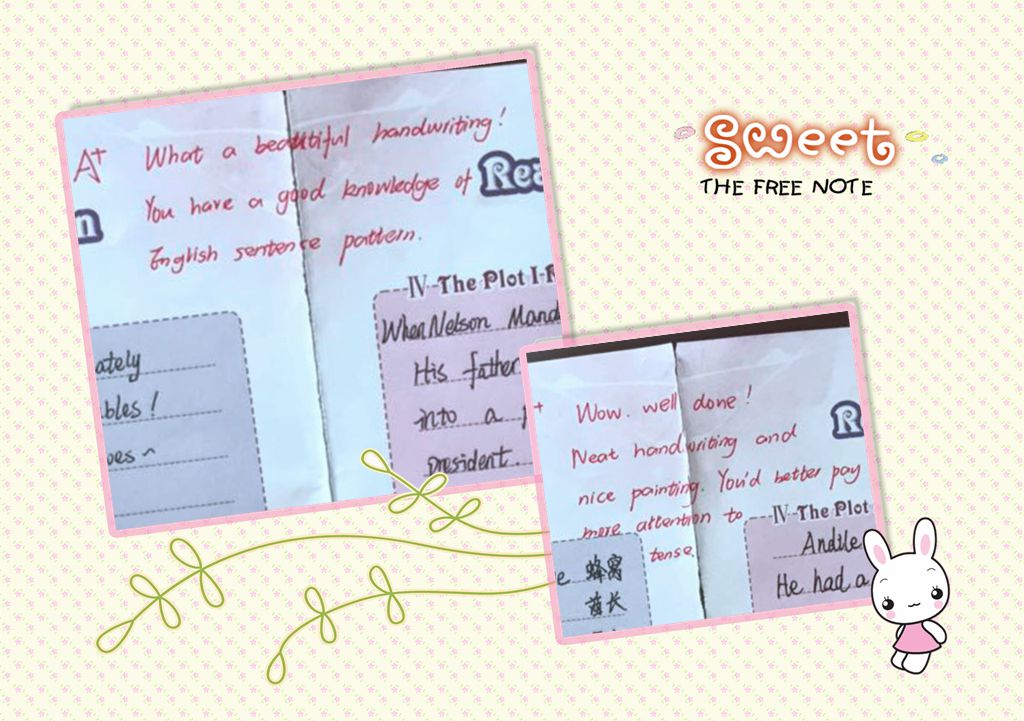 A+
What a beautiful handwriting!
You have a good knowledge of
English sentence pattern.
Rea
n
IV The Plot I-R
When Nelson Mand
His father
into a p
president.
ately
bles!
oes~
Sweet
THE FREE NOTE
+
Wow. well done!
Neat handwriting and
nice painting. You'd better pay
more attention to
tense.
R
IV The Plot
Andile
He had a
e 蜂窝
酋长